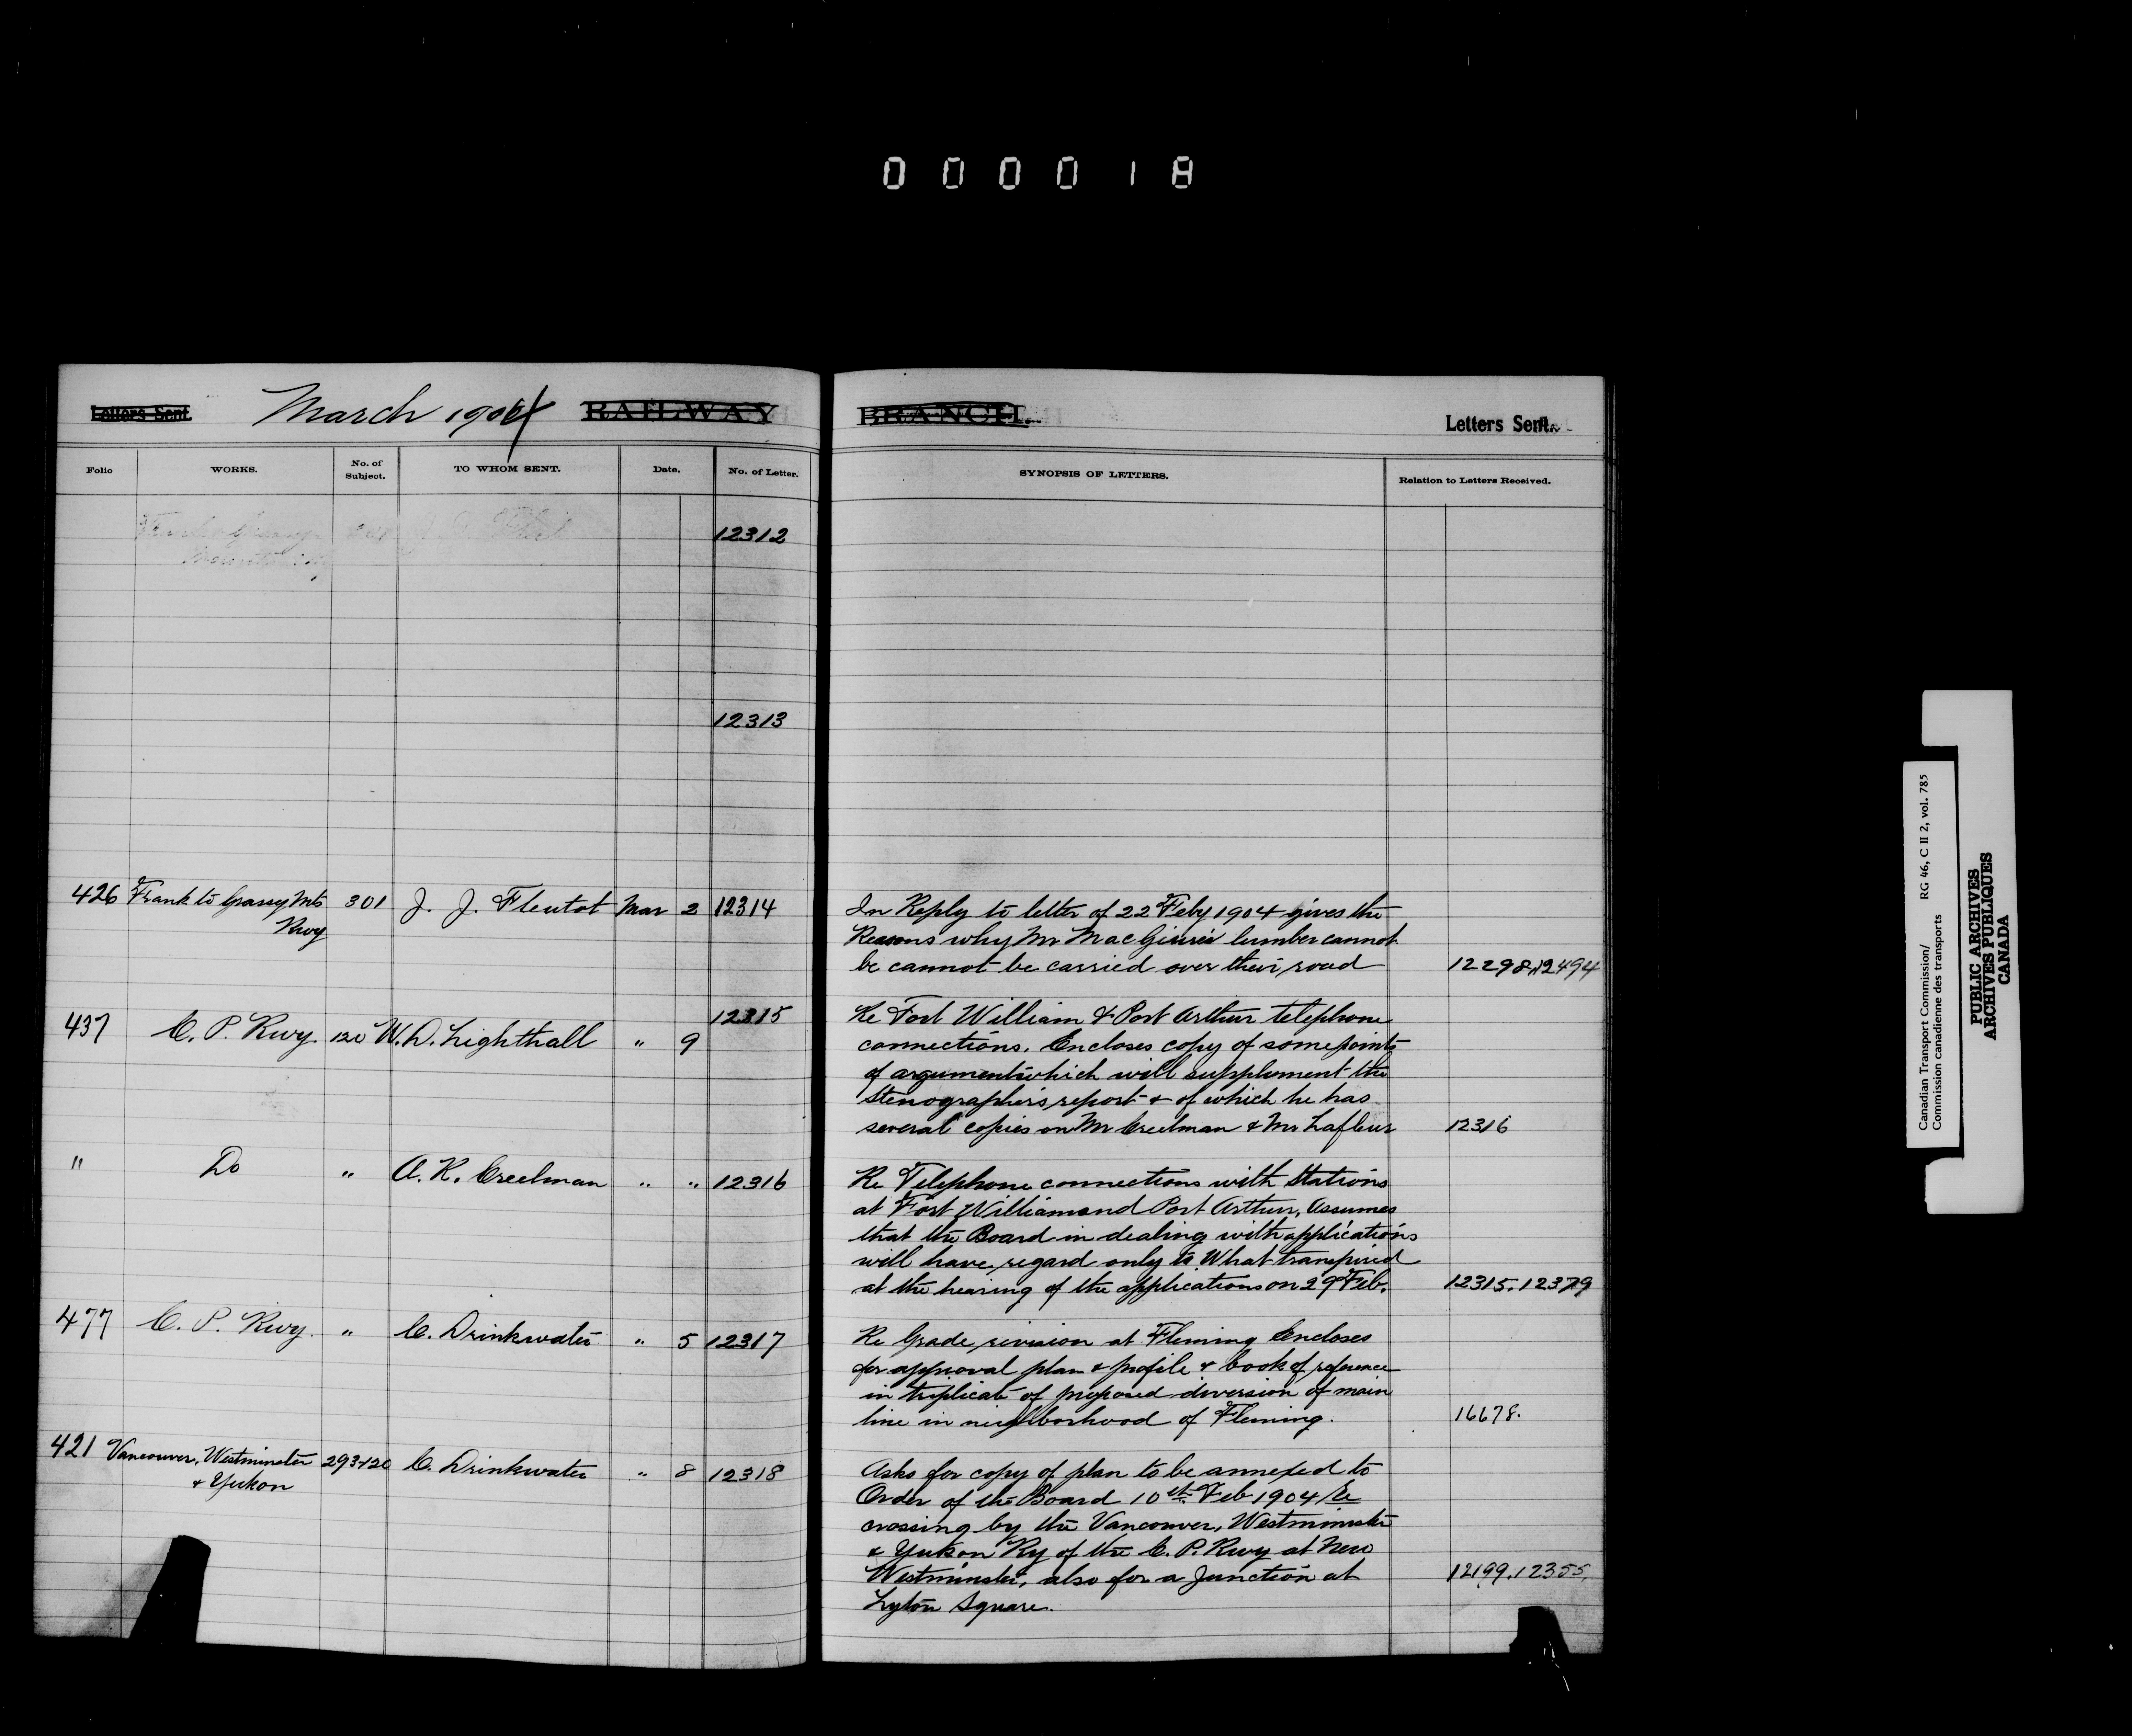 000018
Letters Sent. March 1904 RAILWAY BRANCH. Letters Sent.
Folio WORKS. No. of Subject. TO WHOM SENT. Date. No. of Letter. SYNOPSIS OF LETTERS. Relation to Letters Received.
12312
12313
426 Frank to Grassy Mts 301 J. J. Fleutot Mar 2 12314 In Reply to letter of 22 Feby 1904 gives the
Rwy Reasons why Mr lumber cannot
be cannot be carried over their road 12298, 12494
12315 Re Fort William & Port Arthur telephone
437 C. P. Rwy. 120 W. D. Lighthall " 9 connections. Encloses copy of some points
of argument which will supplement the
Stenographers report & of which he has
several copies on Mr Creelman & Mr Lafleur 12316
" Do " A. R. Creelman " " 12316 Re Telephone connections with Stations
at Fort William and Port Arthur, Assumes
that the Board in dealing with applications
will have regard only to What transpired
at the hearing of the applications on 29 Feb. 12315, 12379
477 C. P. Rwy. " C. Drinkwater " 5 12317 Re Grade revision at Fleming Encloses
for approval plan & profile & book of reference
in triplicate of proposed diversion of main
line in neighborhood of Fleming. 16678.
421 Vancouver, Westminster 293+20 C. Drinkwater " 8 12318 Asks for copy of plan to be annexed to
& Yukon Order of the Board 10th Feb 1904 Re
crossing by the Vancouver, Westminster
& Yukon Ry of the C. P. Rwy at New
Westminster, also for a Junction at 12199, 12355,
Lyton Square.
Canadian Transport Commission/ RG 46, C II 2, vol. 785
Commission canadienne des transports
PUBLIC ARCHIVES
ARCHIVES PUBLIQUES
CANADA